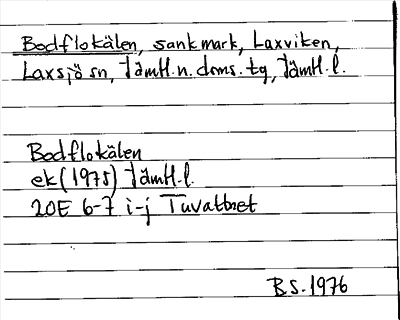 Bodflokälen, sankmark, Laxviken,
Laxsjö sn, Jämtl.n.doms.tg, Jämtl.l.
Bodflokälen
ek (1975) Jämtl.l.
20E 6-7 i-j Tuvattnet
B.S. 1976